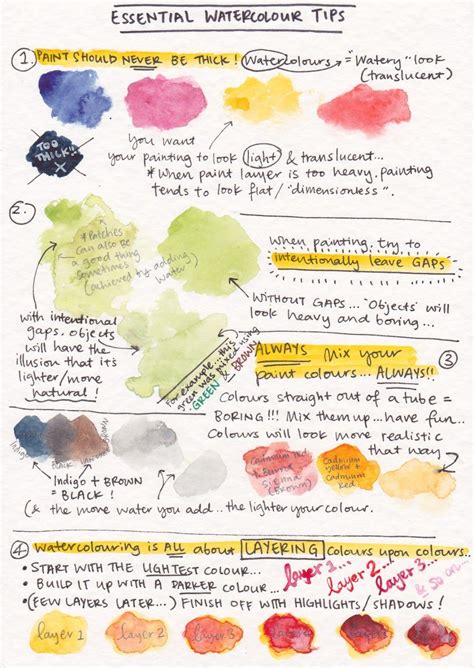 ESSENTIAL WATERCOLOUR TIPS
1. PAINT SHOULD NEVER BE THICK! Watercolours = "Watery" look
(translucent)
TOO
THICK!!
X
You want
your painting to look light & translucent...
* When paint layer is too heavy, painting
tends to look flat / "dimensionless".
2.
* Patches
can also be
a good thing
sometimes
(achieved by adding
water)
When painting, try to
intentionally leave GAPS
WITHOUT GAPS... 'Objects' will
look heavy and boring...
with intentional
gaps, objects
will have the
illusion that it's
lighter/more
natural!
For example... this
green was mixed using
GREEN & BROWN
ALWAYS Mix your
paint colours... ALWAYS!!
3
Colours straight out of a tube =
BORING!!! Mix them up... have fun...
Colours will look more realistic
that way
Indigo
BLACK
Indigo + BROWN
= BLACK!
(& the more water you add.. the lighter your colour.
Cadmium red
& Burnt
Sienna
(Brown)
Cadmium
yellow +
Cadmium
Red
4 Watercolouring is ALL about LAYERING colours upon colours..
• START WITH THE LIGHTEST COLOUR...
• BUILD IT UP WITH A DARKER COLOUR...
• (FEW LAYERS LATER...) FINISH OFF WITH HIGHLIGHTS/SHADOWS!
layer 1... layer 2... layer 3... & so on...
layer 1 layer 2 layer 3